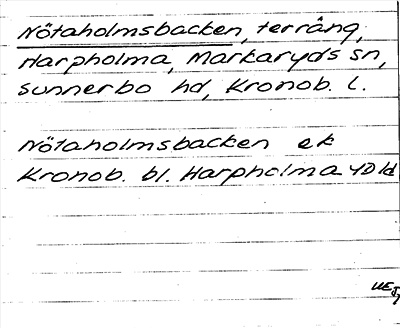 Nötaholmsbacken, terräng,
Harpholma, Markaryds sn,
Sunnerbo hd, Kronob. l.
Nötaholmsbacken ek
Kronob. bl. Harpholma 4D ld